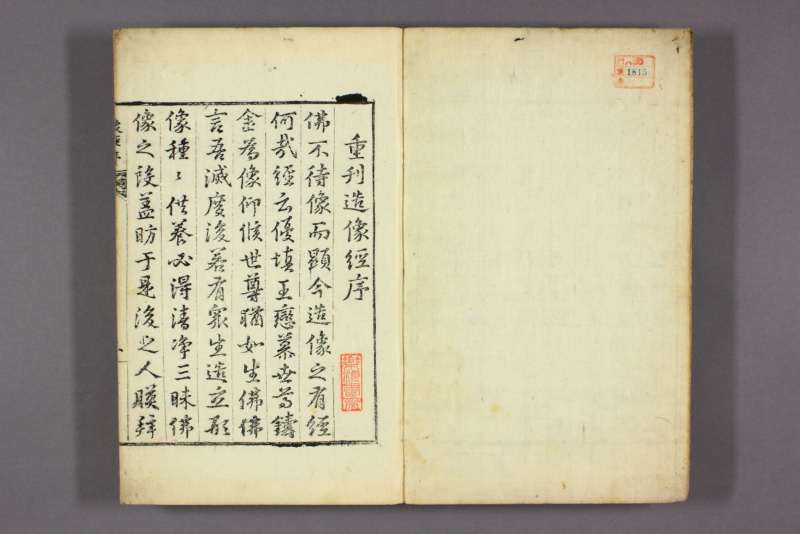 重刊造像經序
佛不待像而顯今造像之有經
何哉經云優填王戀慕世尊鑄
金為像仰候世尊猶如生佛佛
言吾滅度後若有衆生造立形
像種〻供養必得清净三昧佛
像之設蓋昉于是後之人睽
1815